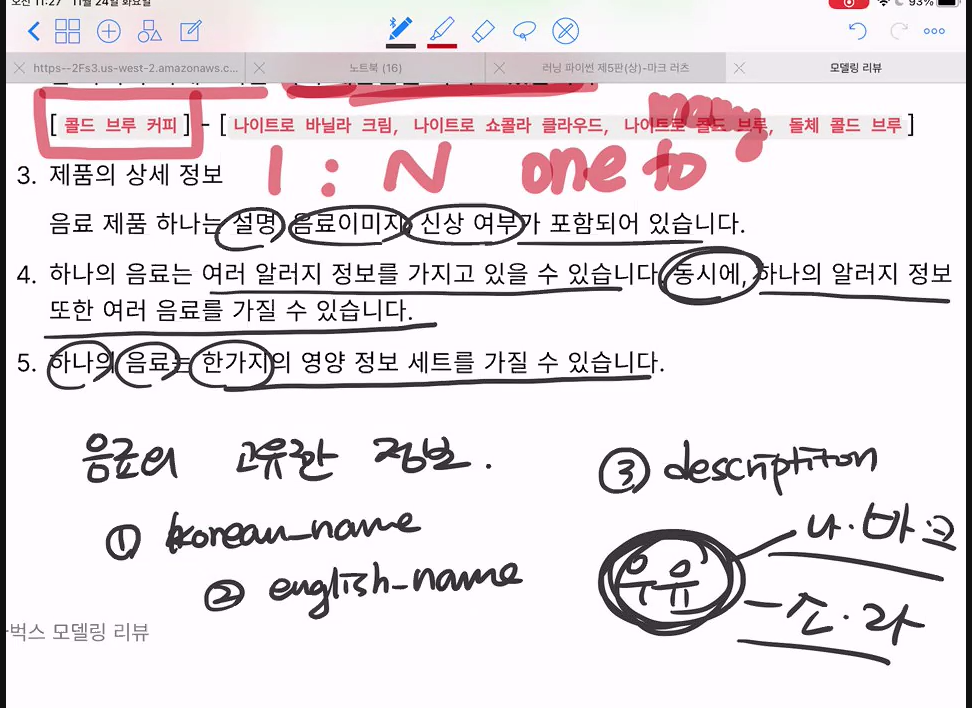 오전 11:27 11월 24일 화요일 93%
https--2Fs3.us-west-2.amazonaws.c... 노트북 (16) 러닝 파이썬 제5판(상)-마크 러츠 모델링 리뷰
many
[ 콜드 브루 커피 ] - [ 나이트로 바닐라 크림, 나이트로 쇼콜라 클라우드, 나이트로 콜드 브루, 돌체 콜드 브루 ]
1 : N one to
3. 제품의 상세 정보
음료 제품 하나는 설명, 음료이미지, 신상 여부가 포함되어 있습니다.
4. 하나의 음료는 여러 알러지 정보를 가지고 있을 수 있습니다. 동시에, 하나의 알러지 정보
또한 여러 음료를 가질 수 있습니다.
5. 하나의 음료는 한가지의 영양 정보 세트를 가질 수 있습니다.
음료의 고유한 정보.
① korean_name
② english_name
③ descriptiton
우유
나.바.크
소.라
벅스 모델링 리뷰